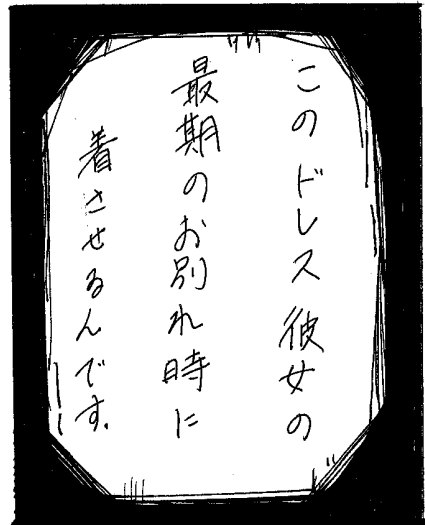 このドレス彼女の
最期のお別れ時に
着させるんです.